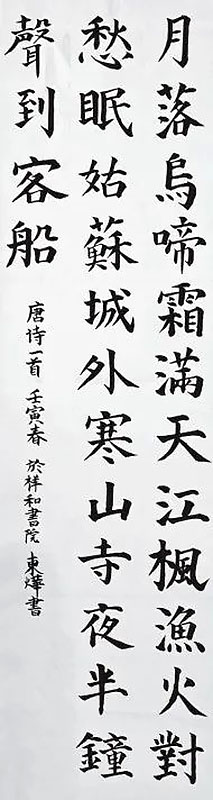 月落烏啼霜滿天江楓漁火對
愁眠姑蘇城外寒山寺夜半鐘
聲到客船
唐詩一首 壬寅春 於祥和書院 東燁書